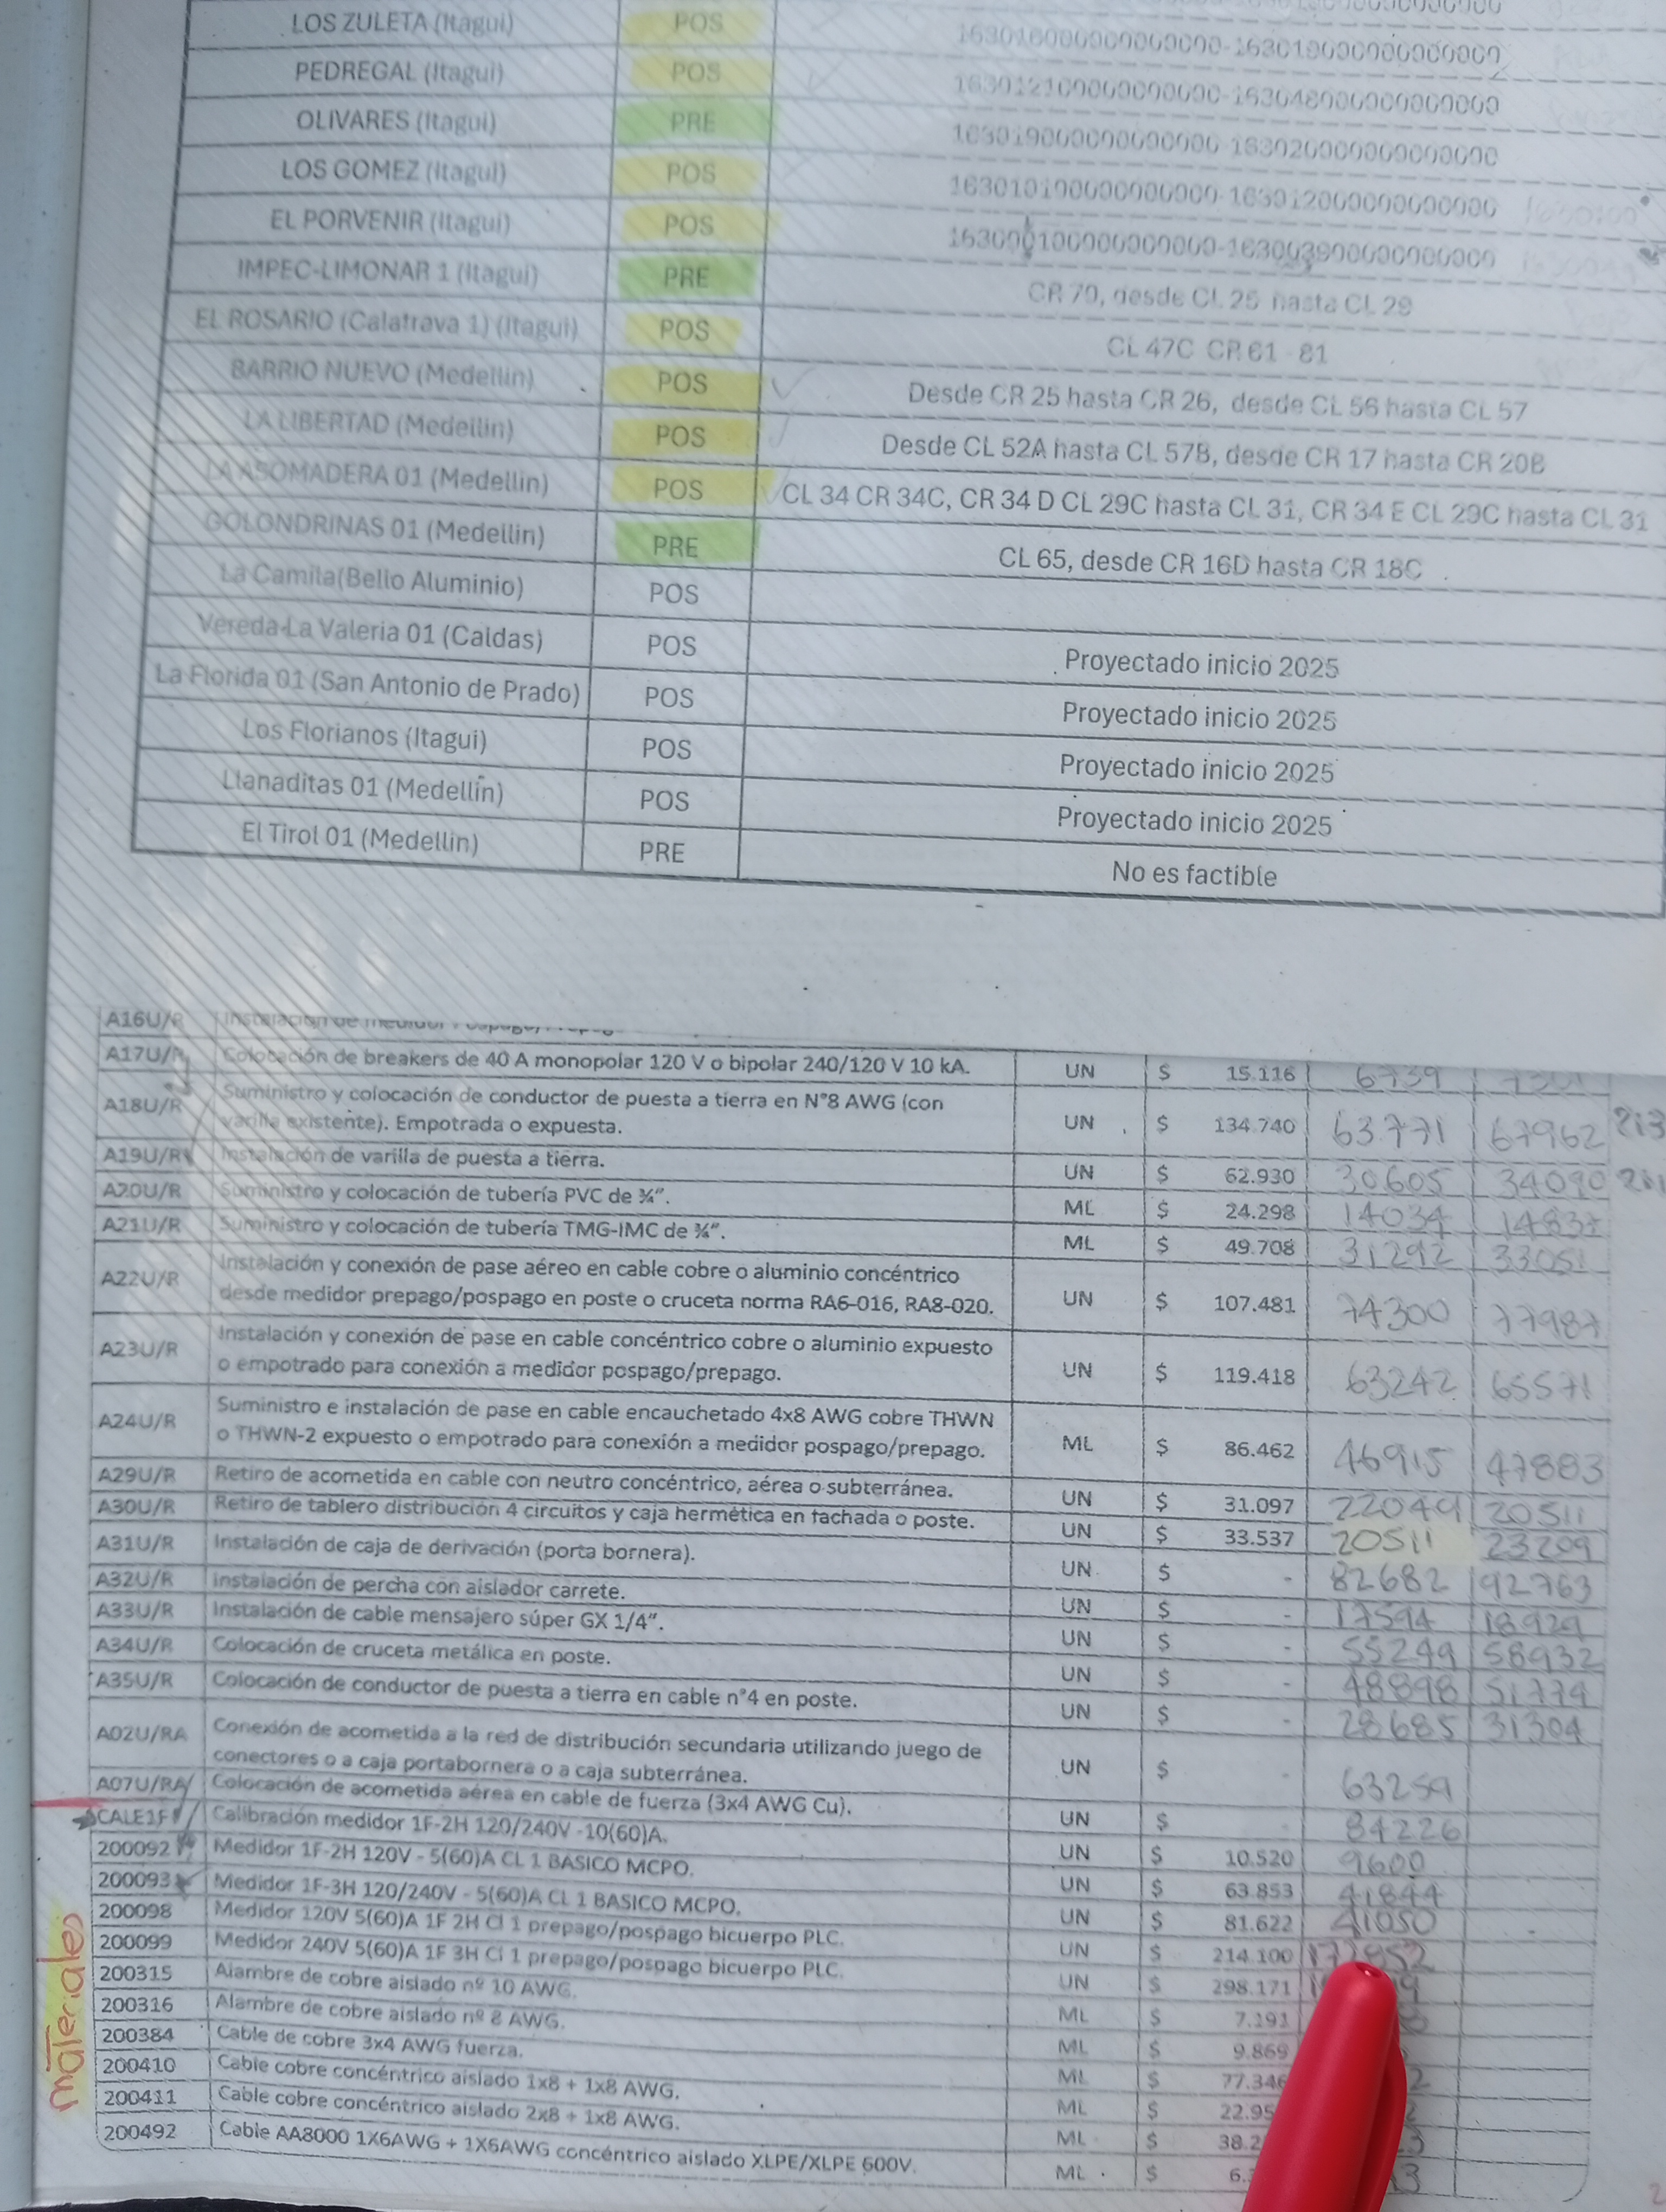 LOS ZULETA (Itagui) POS
PEDREGAL (Itagui) POS
OLIVARES (Itagui) PRE
LOS GOMEZ (Itagui) POS
EL PORVENIR (Itagui) POS
IMPEC-LIMONAR 1 (Itagui) PRE CR 70, desde CL 25 hasta CL 29
EL ROSARIO (Calatrava 1) (Itagui) POS CL 47C CR 61 - 81
BARRIO NUEVO (Medellin) POS Desde CR 25 hasta CR 26, desde CL 56 hasta CL 57
LA LIBERTAD (Medellin) POS Desde CL 52A hasta CL 57B, desde CR 17 hasta CR 20B
LA ASOMADERA 01 (Medellin) POS CL 34 CR 34C, CR 34 D CL 29C hasta CL 31, CR 34 E CL 29C hasta CL 31
GOLONDRINAS 01 (Medellin) PRE CL 65, desde CR 16D hasta CR 18C
La Camila(Bello Aluminio) POS
Vereda-La Valeria 01 (Caldas) POS Proyectado inicio 2025
La Florida 01 (San Antonio de Prado) POS Proyectado inicio 2025
Los Florianos (Itagui) POS Proyectado inicio 2025
Llanaditas 01 (Medellin) POS Proyectado inicio 2025
El Tirol 01 (Medellin) PRE No es factible
A16U/R Instalación de medidor
A17U/R Colocación de breakers de 40 A monopolar 120 V o bipolar 240/120 V 10 kA. UN $ 15.116 6739
A18U/R Suministro y colocación de conductor de puesta a tierra en N°8 AWG (con
varilla existente). Empotrada o expuesta. UN $ 134.740 63771 67962
A19U/R Instalación de varilla de puesta a tierra. UN $ 62.930 30605 34090
A20U/R Suministro y colocación de tubería PVC de ¾". ML $ 24.298 14034 14837
A21U/R Suministro y colocación de tubería TMG-IMC de ¾". ML $ 49.708 31292 33051
A22U/R Instalación y conexión de pase aéreo en cable cobre o aluminio concéntrico
desde medidor prepago/pospago en poste o cruceta norma RA6-016, RA8-020. UN $ 107.481 74300 77987
A23U/R Instalación y conexión de pase en cable concéntrico cobre o aluminio expuesto
o empotrado para conexión a medidor pospago/prepago. UN $ 119.418 63242 65571
A24U/R Suministro e instalación de pase en cable encauchetado 4x8 AWG cobre THWN
o THWN-2 expuesto o empotrado para conexión a medidor pospago/prepago. ML $ 86.462 46915 47883
A29U/R Retiro de acometida en cable con neutro concéntrico, aérea o subterránea. UN $ 31.097 22049 20511
A30U/R Retiro de tablero distribución 4 circuitos y caja hermética en fachada o poste. UN $ 33.537 20511 23209
A31U/R Instalación de caja de derivación (porta bornera). UN $ - 82682 92763
A32U/R Instalación de percha con aislador carrete. UN $ - 17594 18929
A33U/R Instalación de cable mensajero súper GX 1/4". UN $ - 55249 58932
A34U/R Colocación de cruceta metálica en poste. UN $ - 48898 51774
A35U/R Colocación de conductor de puesta a tierra en cable n°4 en poste. UN $ - 28685 31304
A02U/RA Conexión de acometida a la red de distribución secundaria utilizando juego de
conectores o a caja portabornera o a caja subterránea. UN $ - 63259
A07U/RA Colocación de acometida aérea en cable de fuerza (3x4 AWG Cu). UN $ - 84226
CALE1F Calibración medidor 1F-2H 120/240V -10(60)A. UN $ 10.520 9600
200092 Medidor 1F-2H 120V - 5(60)A CL 1 BASICO MCPO. UN $ 63.853 41844
200093 Medidor 1F-3H 120/240V - 5(60)A CL 1 BASICO MCPO. UN $ 81.622 41050
200098 Medidor 120V 5(60)A 1F 2H Cl 1 prepago/pospago bicuerpo PLC. UN $ 214.100
200099 Medidor 240V 5(60)A 1F 3H Cl 1 prepago/pospago bicuerpo PLC. UN $ 298.171
200315 Alambre de cobre aislado nº 10 AWG. ML $ 7.191
200316 Alambre de cobre aislado nº 8 AWG. ML $ 9.869
200384 Cable de cobre 3x4 AWG fuerza. ML $ 77.346
200410 Cable cobre concéntrico aislado 1x8 + 1x8 AWG. ML $ 22.95
200411 Cable cobre concéntrico aislado 2x8 + 1x8 AWG. ML $ 38.2
200492 Cable AA8000 1X6AWG + 1X6AWG concéntrico aislado XLPE/XLPE 600V. ML $ 6.
materiales